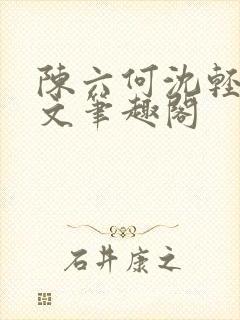 陳六何沈輕
文筆趣閣
石井康之